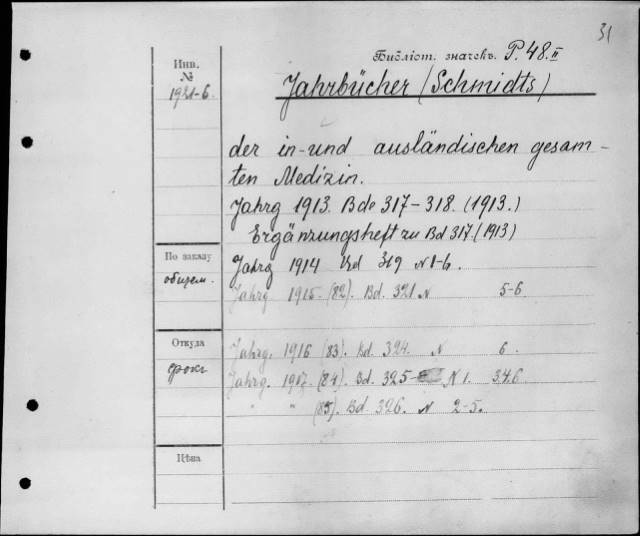 31
Библіот. значекъ. P. 48. II
Инв.
№
1921-6.
Jahrbücher (Schmidts)
der in- und ausländischen gesam-
ten Medizin.
Jahrg 1913. Bde 317-318. (1913.)
Ergänzungsheft zu Bd 317. (1913)
По заказу
общем.
Jahrg 1914 Bd 319 N 1-6.
Jahrg 1915. (82). Bd. 321 N 5-6.
Откуда
Jahrg. 1916 (83). Bd. 324. N 6.
Jahrg. 1917. (84). Bd. 325 N 1. 3.4.6
" " (85). Bd 326. N 2-5.
Цѣна